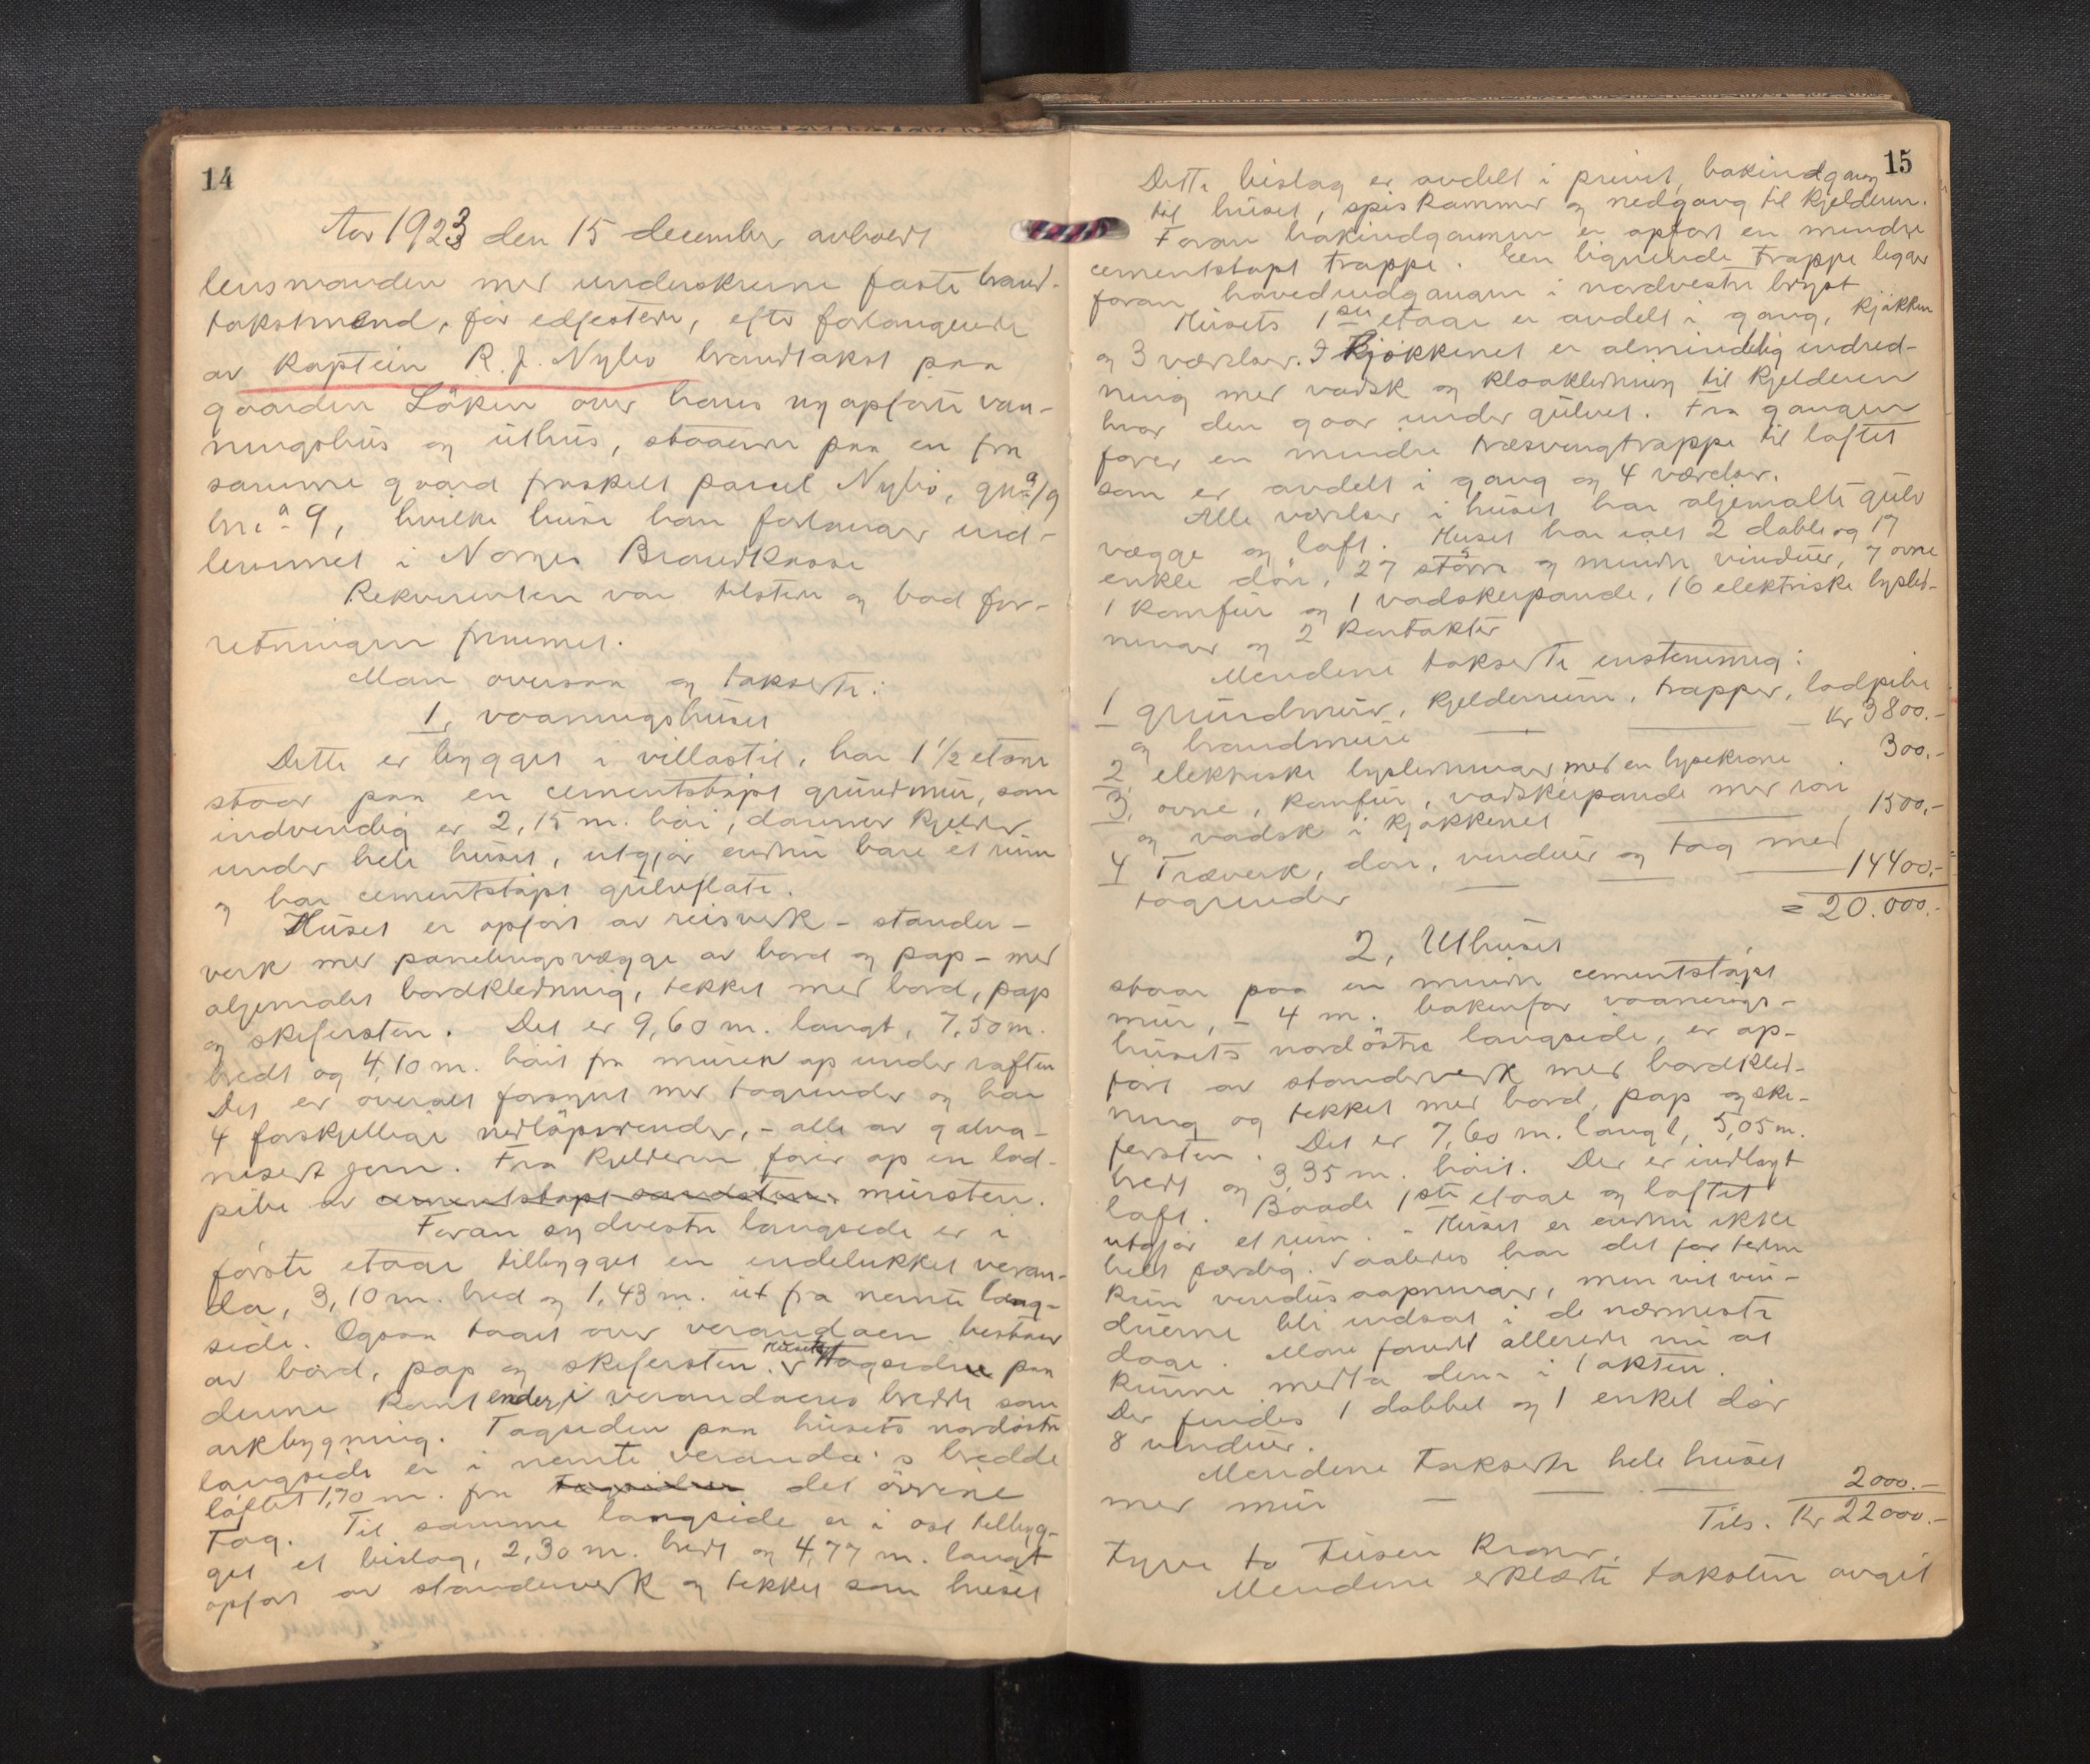 14
Aar 1923 den 15 december avholdt
lensmanden med underskrevne faste brand-
takstmænd, før edfestede, efter forlangende
av kaptein R. J. Nybø brandtakst paa
gaarden Löken over hans ny opførte vaa-
ningshus og uthus, staaende paa en fra
samme gaard fraskilt parcel Nybø, gna 19
bra 9, hvilke huse han forlanger ind-
lemmet i Norges Brandkasse
Rekvirenten var tilstede og bad for-
retningen fremmet.
Man oversaa og takserte:
1, vaaningshuset
Dette er bygget i villastil, har 1 1/2 etage
staar paa en cementstøpt grundmur, som
indvendig er 2,15 m. høi, danner kjelder
under hele huset, utgjør endnu bare et rum
og har cementstøpt gulvflate.
Huset er opført av reisverk - stender-
verk med panelingsvægge av bord og pap - med
oljemalet bordklædning, tekket med bord, pap
og skifersten. Det er 9,60 m. langt, 7,50 m.
bredt og 4,10 m. høit fra muren op under raften
Det er overalt forsynet med tagrender og har
4 forskjellige nedløpsrender, - alle av galva-
nisert jern. Fra kjelderen fører op en lod-
pibe av cementstøpt sandsten mursten.
Foran sydvestre langside er i
første etage tilbygget en indelukket veran-
da, 3,10 m. bred og 1,43 m. ut fra nevnte lang-
side. Ogsaa taget over verandaen bestaar
av bord, pap og skifersten. Husets tagside paa
denne kant ender i verandaens bredde som
arkbygning. Tagsiden paa husets nordøstre
langside er i nevnte veranda's bredde
løftet 1,70 m. fra tagsiden det øvrige
tag. Til samme langside er i øst tilbyg-
get et bislag, 2,30 m. bredt og 4,77 m. langt
opført av stenderverk og tekket som huset
15
Dette bislag er avdelt i privet, bakindgang
til huset, spiskammer og nedgang til kjelderen.
Foran bakindgangen er opført en mindre
cementstøpt trappe. Een lignende trappe ligger
foran hovedindgangen i nordvestre bryst
Husets 1ste etage er avdelt i gang, kjøkken
og 3 værelser. I kjøkkenet er almindelig indred-
ning med vadsk og kloakledning til kjelderen
hvor den gaar under gulvet. Fra gangen
fører en mindre træsvingtrappe til loftet
som er avdelt i gang og 4 værelser.
Alle værelser i huset har oljemalte gulv
vægge og loft. Huset har ialt 2 doble og 17
enkle døre, 27 større og mindre vinduer, 7 ovne
1 komfur og 1 vadskerpande, 16 elektriske lysled-
ninger og 2 kontakter
Mendene takserte enstemmig:
1 grundmur, kjelderrum, trapper, lodpibe
og brandmure — — — Kr 3800.-
2, elektriske lysledninger med en lysekrone . 300.-
3, ovne, komfur, vadskerpande med rør
og vadsk i kjøkkenet — 1500,-
4 Træverk, dør, vinduer og tag med
tagrender — — — 14400.-
= 20.000.-
2, Uthuset
staar paa en mindre cementstøpt
mur, - 4 m. bakenfor vaanings-
husets nordöstre langside, er op-
ført av stenderverk med bordkled-
ning og tekket med bord, pap og ski-
fersten. Det er 7,60 m. langt, 5,05 m.
bredt og 3,35 m. høit. Der er indlagt
loft. Baade 1ste etage og loftet
utgjør et rum. - Huset er endnu ikke
helt færdig. Saaledes har det for tiden
kun vindusaapninger, men vil vin-
duerne bli indsat i de nærmeste
dage. Man fandt allerede nu at
kunne medta dem i takten.
Der findes 1 dobbel og 1 enkel dør
8 vinduer.
Mendene takserte hele huset
med mur — — — 2000.-
Tils. Kr 22000.-
Tyve to tusen Kroner.
Mendene erklærte taksten avgit